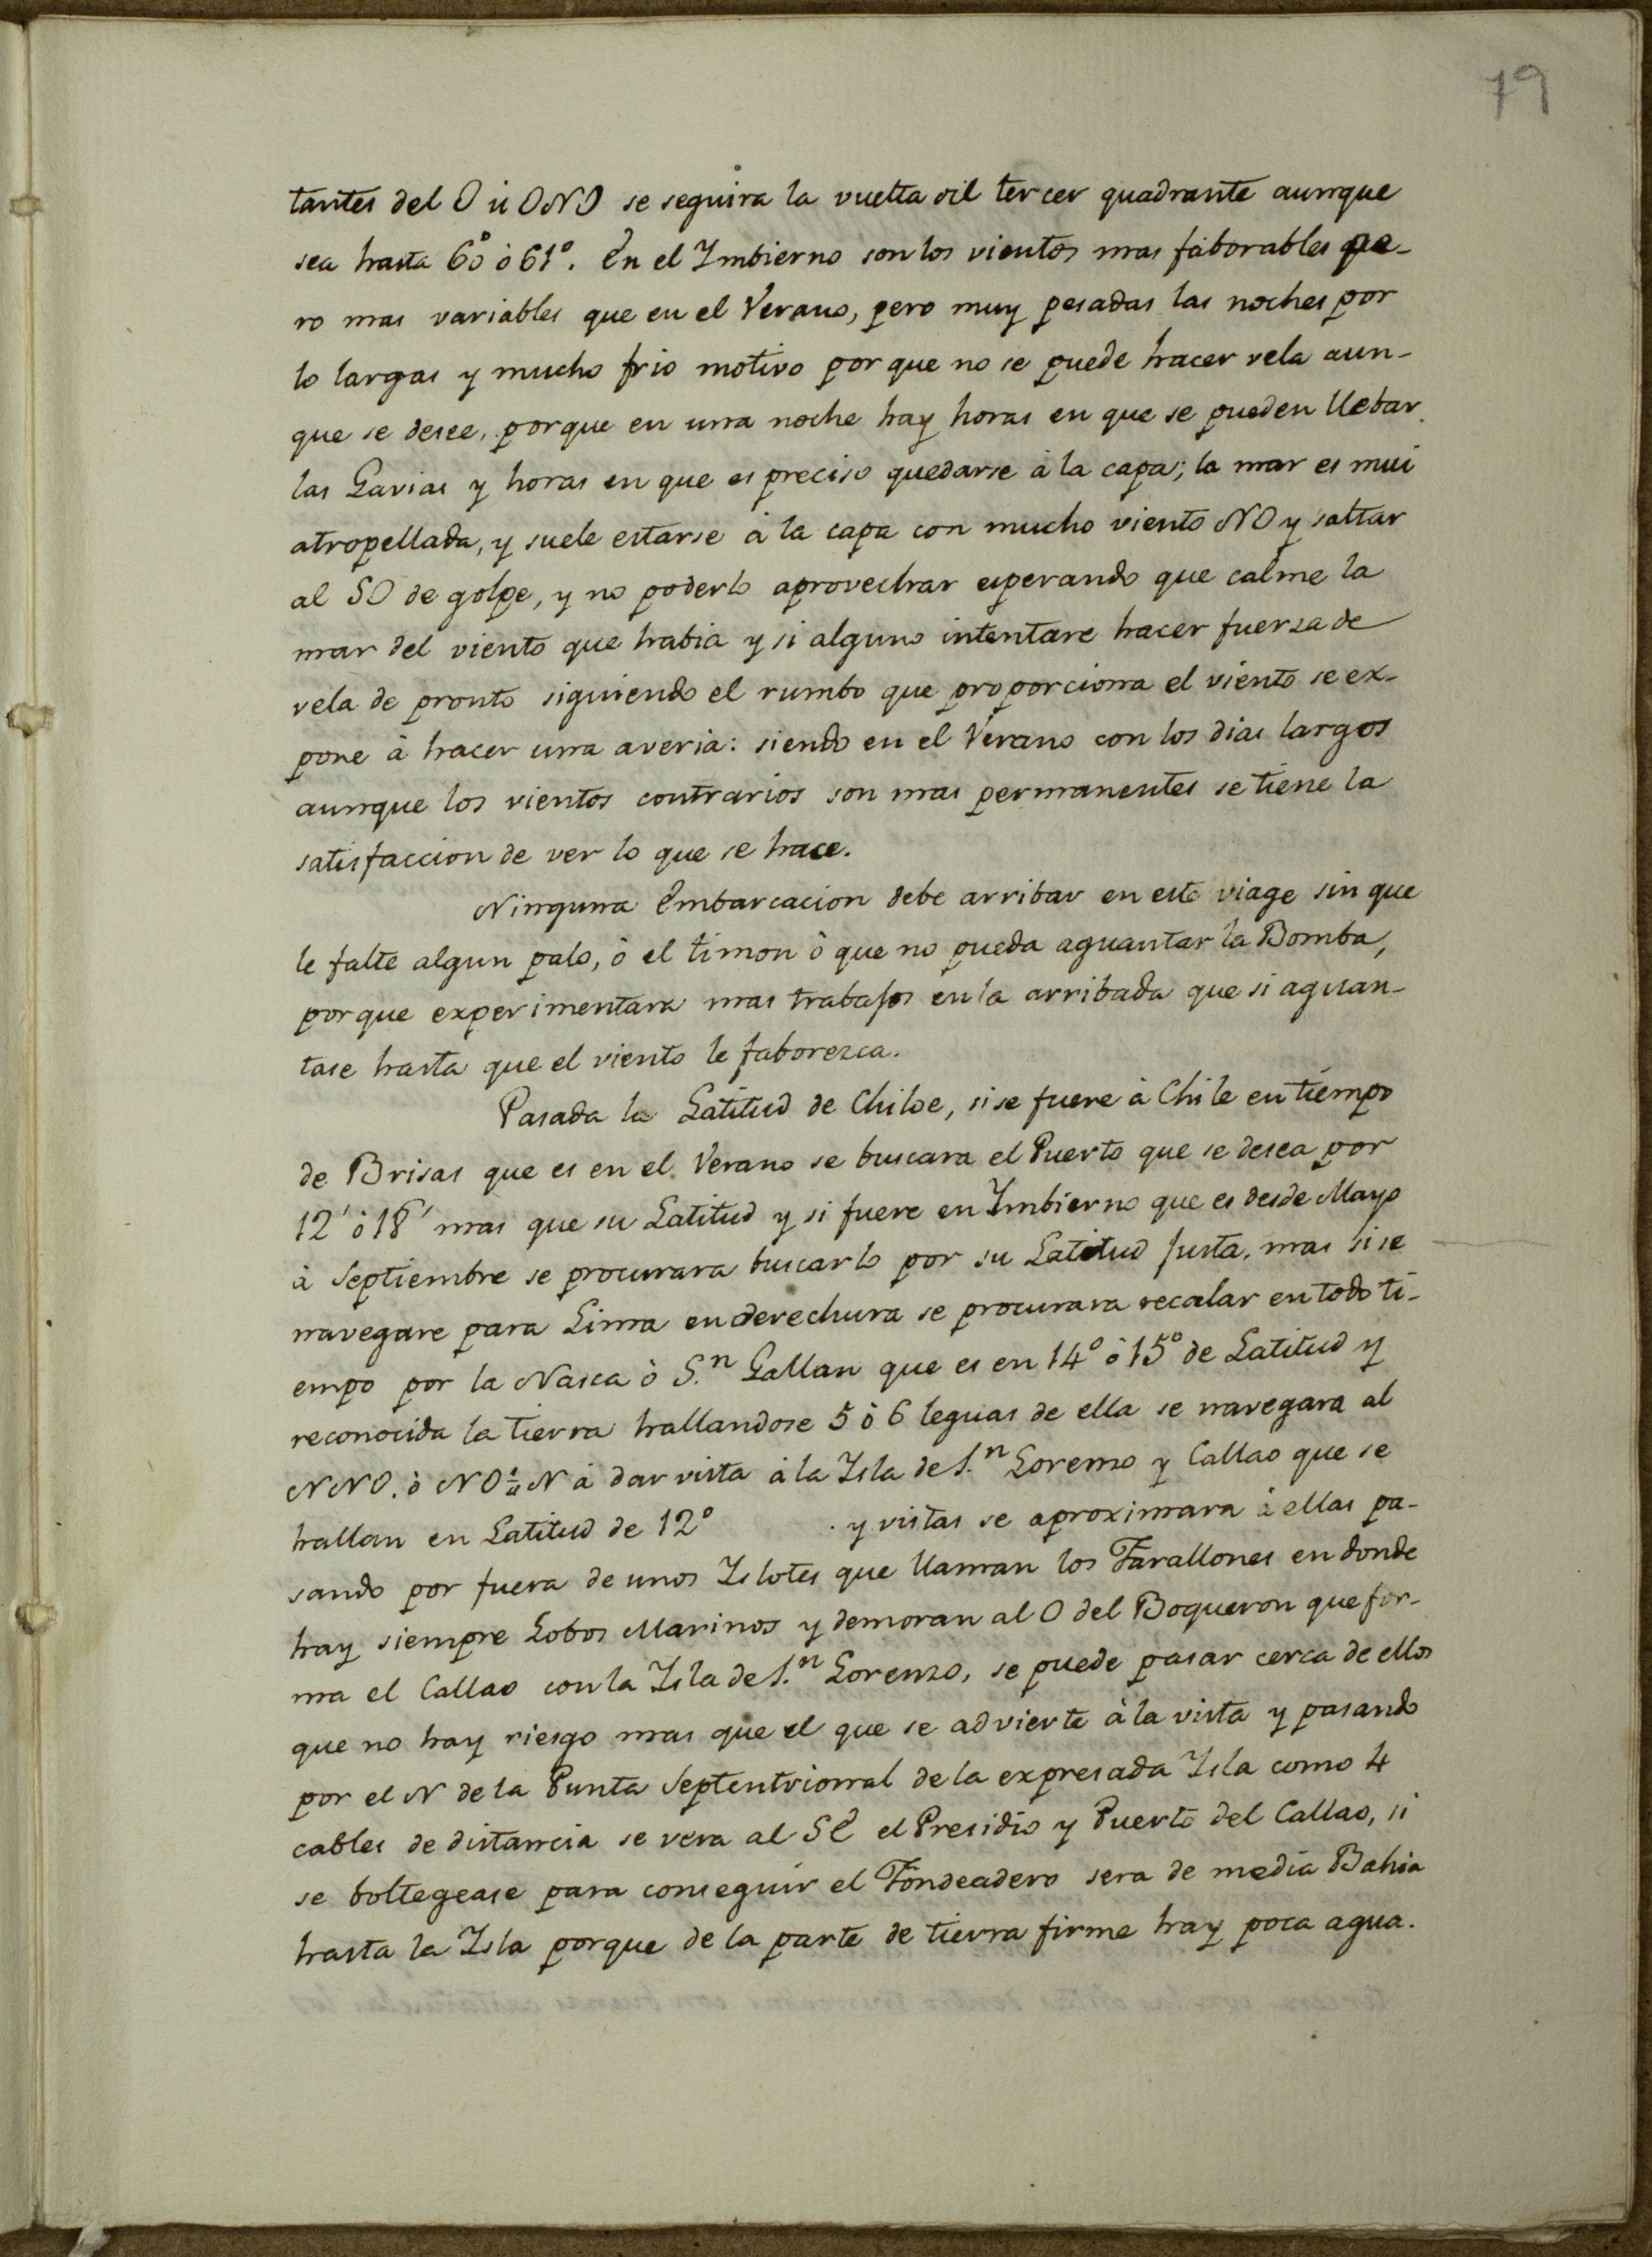 79
tantes del O ú ONO se seguira la vuelta del tercer quadrante aunque
sea hasta 60° ó 61°. En el Imbierno son los vientos mas faborables pe-
ro mas variables que en el Verano, pero muy pesadas las noches por
lo largas y mucho frio motivo por que no se puede hacer vela aun-
que se desee, porque en una noche hay horas en que se pueden llebar
las Gavias y horas en que es preciso quedarse à la capa; la mar es mui
atropellada, y suele estarse à la capa con mucho viento NO y saltar
al SO de golpe, y no poderlo aprovechar esperando que calme la
mar del viento que habia y si alguno intentare hacer fuerza de
vela de pronto siguiendo el rumbo que proporciona el viento se ex-
pone à hacer una averia: siendo en el Verano con los dias largos
aunque los vientos contrarios son mas permanentes se tiene la
satisfaccion de ver lo que se hace.
Ninguna Embarcacion debe arribar en este viage sin que
le falte algun palo, ò el timon ò que no pueda aguantar la Bomba,
porque experimentara mas trabajos en la arribada que si aguan-
tase hasta que el viento le faborezca.
Pasada la Latitud de Chiloe, si se fuere à Chile en tiempo
de Brisas que es en el Verano se buscara el Puerto que se desea por
12' ò 18' mas que su Latitud y si fuere en Imbierno que es desde Mayo
à Septiembre se procurara buscarlo por su Latitud justa, mas si se
navegare para Lima en derechura se procurara recalar en todo ti-
empo por la Nasca ò S.n Gallan que es en 14° ò 15° de Latitud y
reconocida la tierra hallandose 5 ò 6 leguas de ella se navegara al
NNO. ò NO¼N à dar vista à la Isla de S.n Lorenzo y Callao que se
hallan en Latitud de 12° . y vistas se aproximara à ellas pa-
sando por fuera de unos Islotes que llaman los Farallones en donde
hay siempre Lobos Marinos y demoran al O del Boqueron que for-
ma el Callao con la Isla de S.n Lorenzo, se puede pasar cerca de ellos
que no hay riesgo mas que el que se advierte à la vista y pasando
por el N de la Punta Septentrional de la expresada Isla como 4
cables de distancia se vera al SE el Presidio y Puerto del Callao, si
se boltegease para conseguir el Fondeadero sera de media Bahia
hasta la Isla porque de la parte de tierra firme hay poca agua.